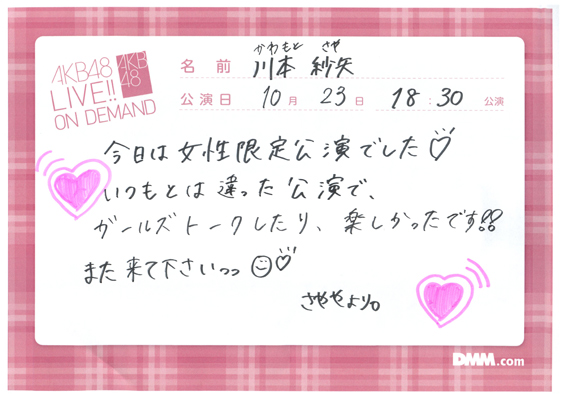 かわもと さや
AKB48 LIVE!! ON DEMAND
AKB48
名前 川本 紗矢
公演日 10月 23日 18:30 公演
今日は女性限定公演でした♡
いつもとは違った公演で、
ガールズトークしたり、楽しかったです!!
また来て下さいっっ☺♡
さややより。
DMM.com